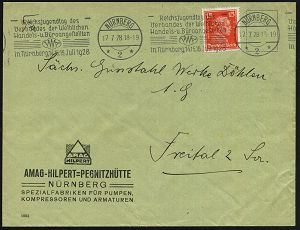 Reichsjugendtag des
Verbandes der Weiblichen
Handels- u. Büroangestellten
in Nürnberg 14. 18. Juli 1928
NÜRNBERG
17.7.28.18-19
2
Reichsjugendtag des
Verbandes der Weiblichen
Handels- u. Büroangestellten
in Nürnberg
NÜRNBERG
17.7.28.18-19
2
15
Deutsches Reich
Sächs. Gussstahl Werke Döhlen
A.G
Freital 2 Sa.
AMAG
HILPERT
AMAG-HILPERT=PEGNITZHÜTTE
NÜRNBERG
SPEZIALFABRIKEN FÜR PUMPEN,
KOMPRESSOREN UND ARMATUREN